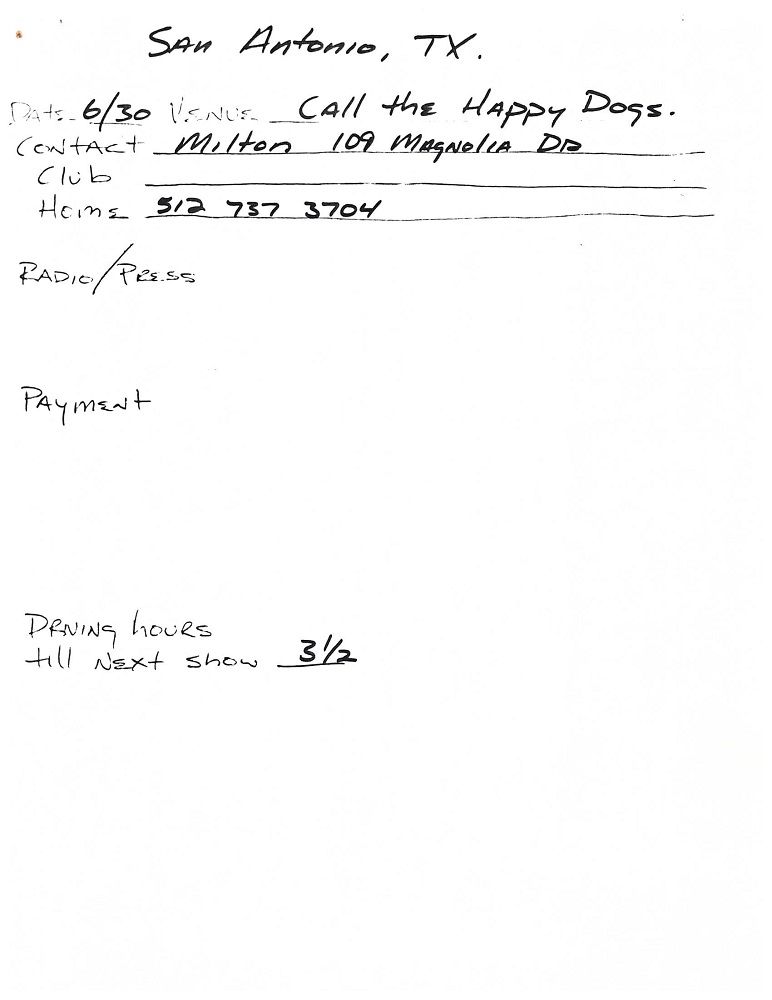 San Antonio, TX.
Date 6/30 Venue Call the Happy Dogs.
Contact Milton 109 Magnolia DR
Club
Home 512 737 3704
Radio/Press
Payment
Driving hours
till next show 3 1/2